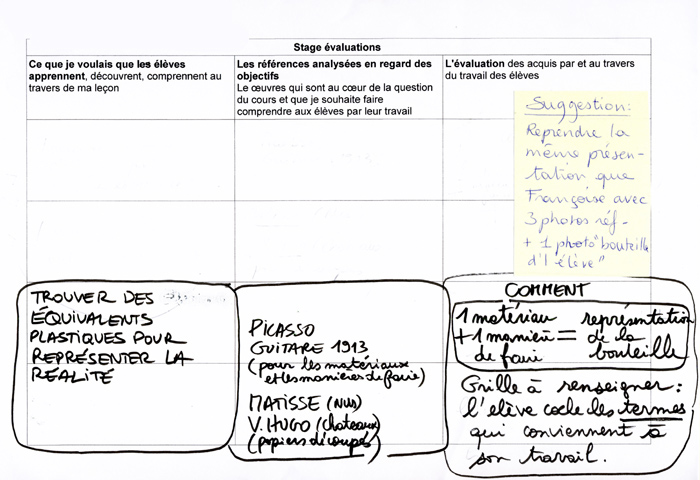 Stage évaluations
Ce que je voulais que les élèves
apprennent, découvrent, comprennent au
travers de ma leçon
Les références analysées en regard des
objectifs
Le œuvres qui sont au cœur de la question
du cours et que je souhaite faire
comprendre aux élèves par leur travail
L'évaluation des acquis par et au travers
du travail des élèves
Suggestion:
Reprendre la
même présen-
tation que
Françoise avec
3 photos réf-
+ 1 photo "bouteille
d'1 élève"
TROUVER DES
ÉQUIVALENTS
PLASTIQUES POUR
REPRÉSENTER LA
RÉALITÉ
PICASSO
GUITARE 1913
(pour les matériaux
et les manières de faire)
MATISSE (NUS)
V. HUGO (chateaux)
(papiers découpés)
COMMENT
1 matériau
+ 1 manière
de faire
=
représentation
de la
bouteille
Grille à renseigner:
l'élève coche les termes
qui conviennent à
son travail.